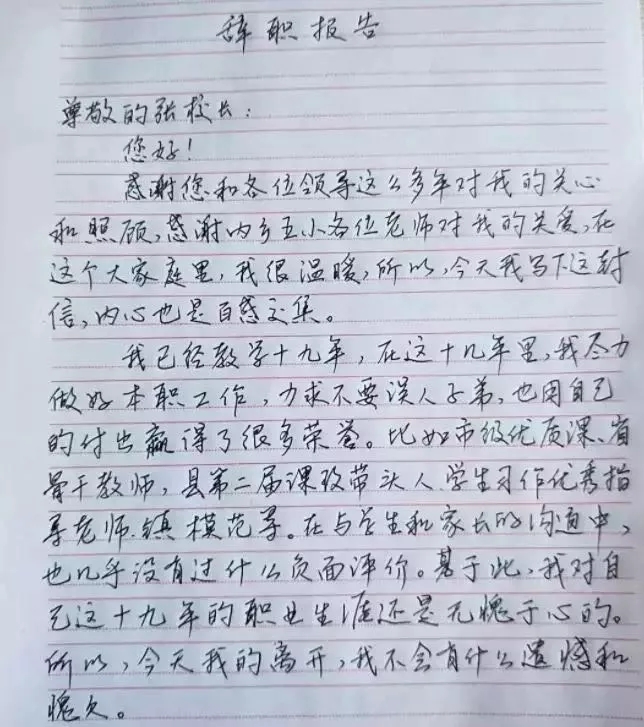 辞职报告
尊敬的张校长:
您好!
感谢您和各位领导这么多年对我的关心
和照顾,感谢内乡五小各位老师对我的关爱,在
这个大家庭里,我很温暖,所以,今天我写下这封
信,内心也是百感交集。
我已经教学十九年,在这十九年里,我尽力
做好本职工作,力求不要误人子弟,也用自己
的付出赢得了很多荣誉。比如市级优质课、省
骨干教师,县第二届课改带头人、学生习作优秀指
导老师、镇模范等。在与学生和家长的沟通中,
也几乎没有过什么负面评价。基于此,我对自
己这十九年的职业生涯还是无愧于心的。
所以,今天我的离开,我不会有什么遗憾和
愧欠。